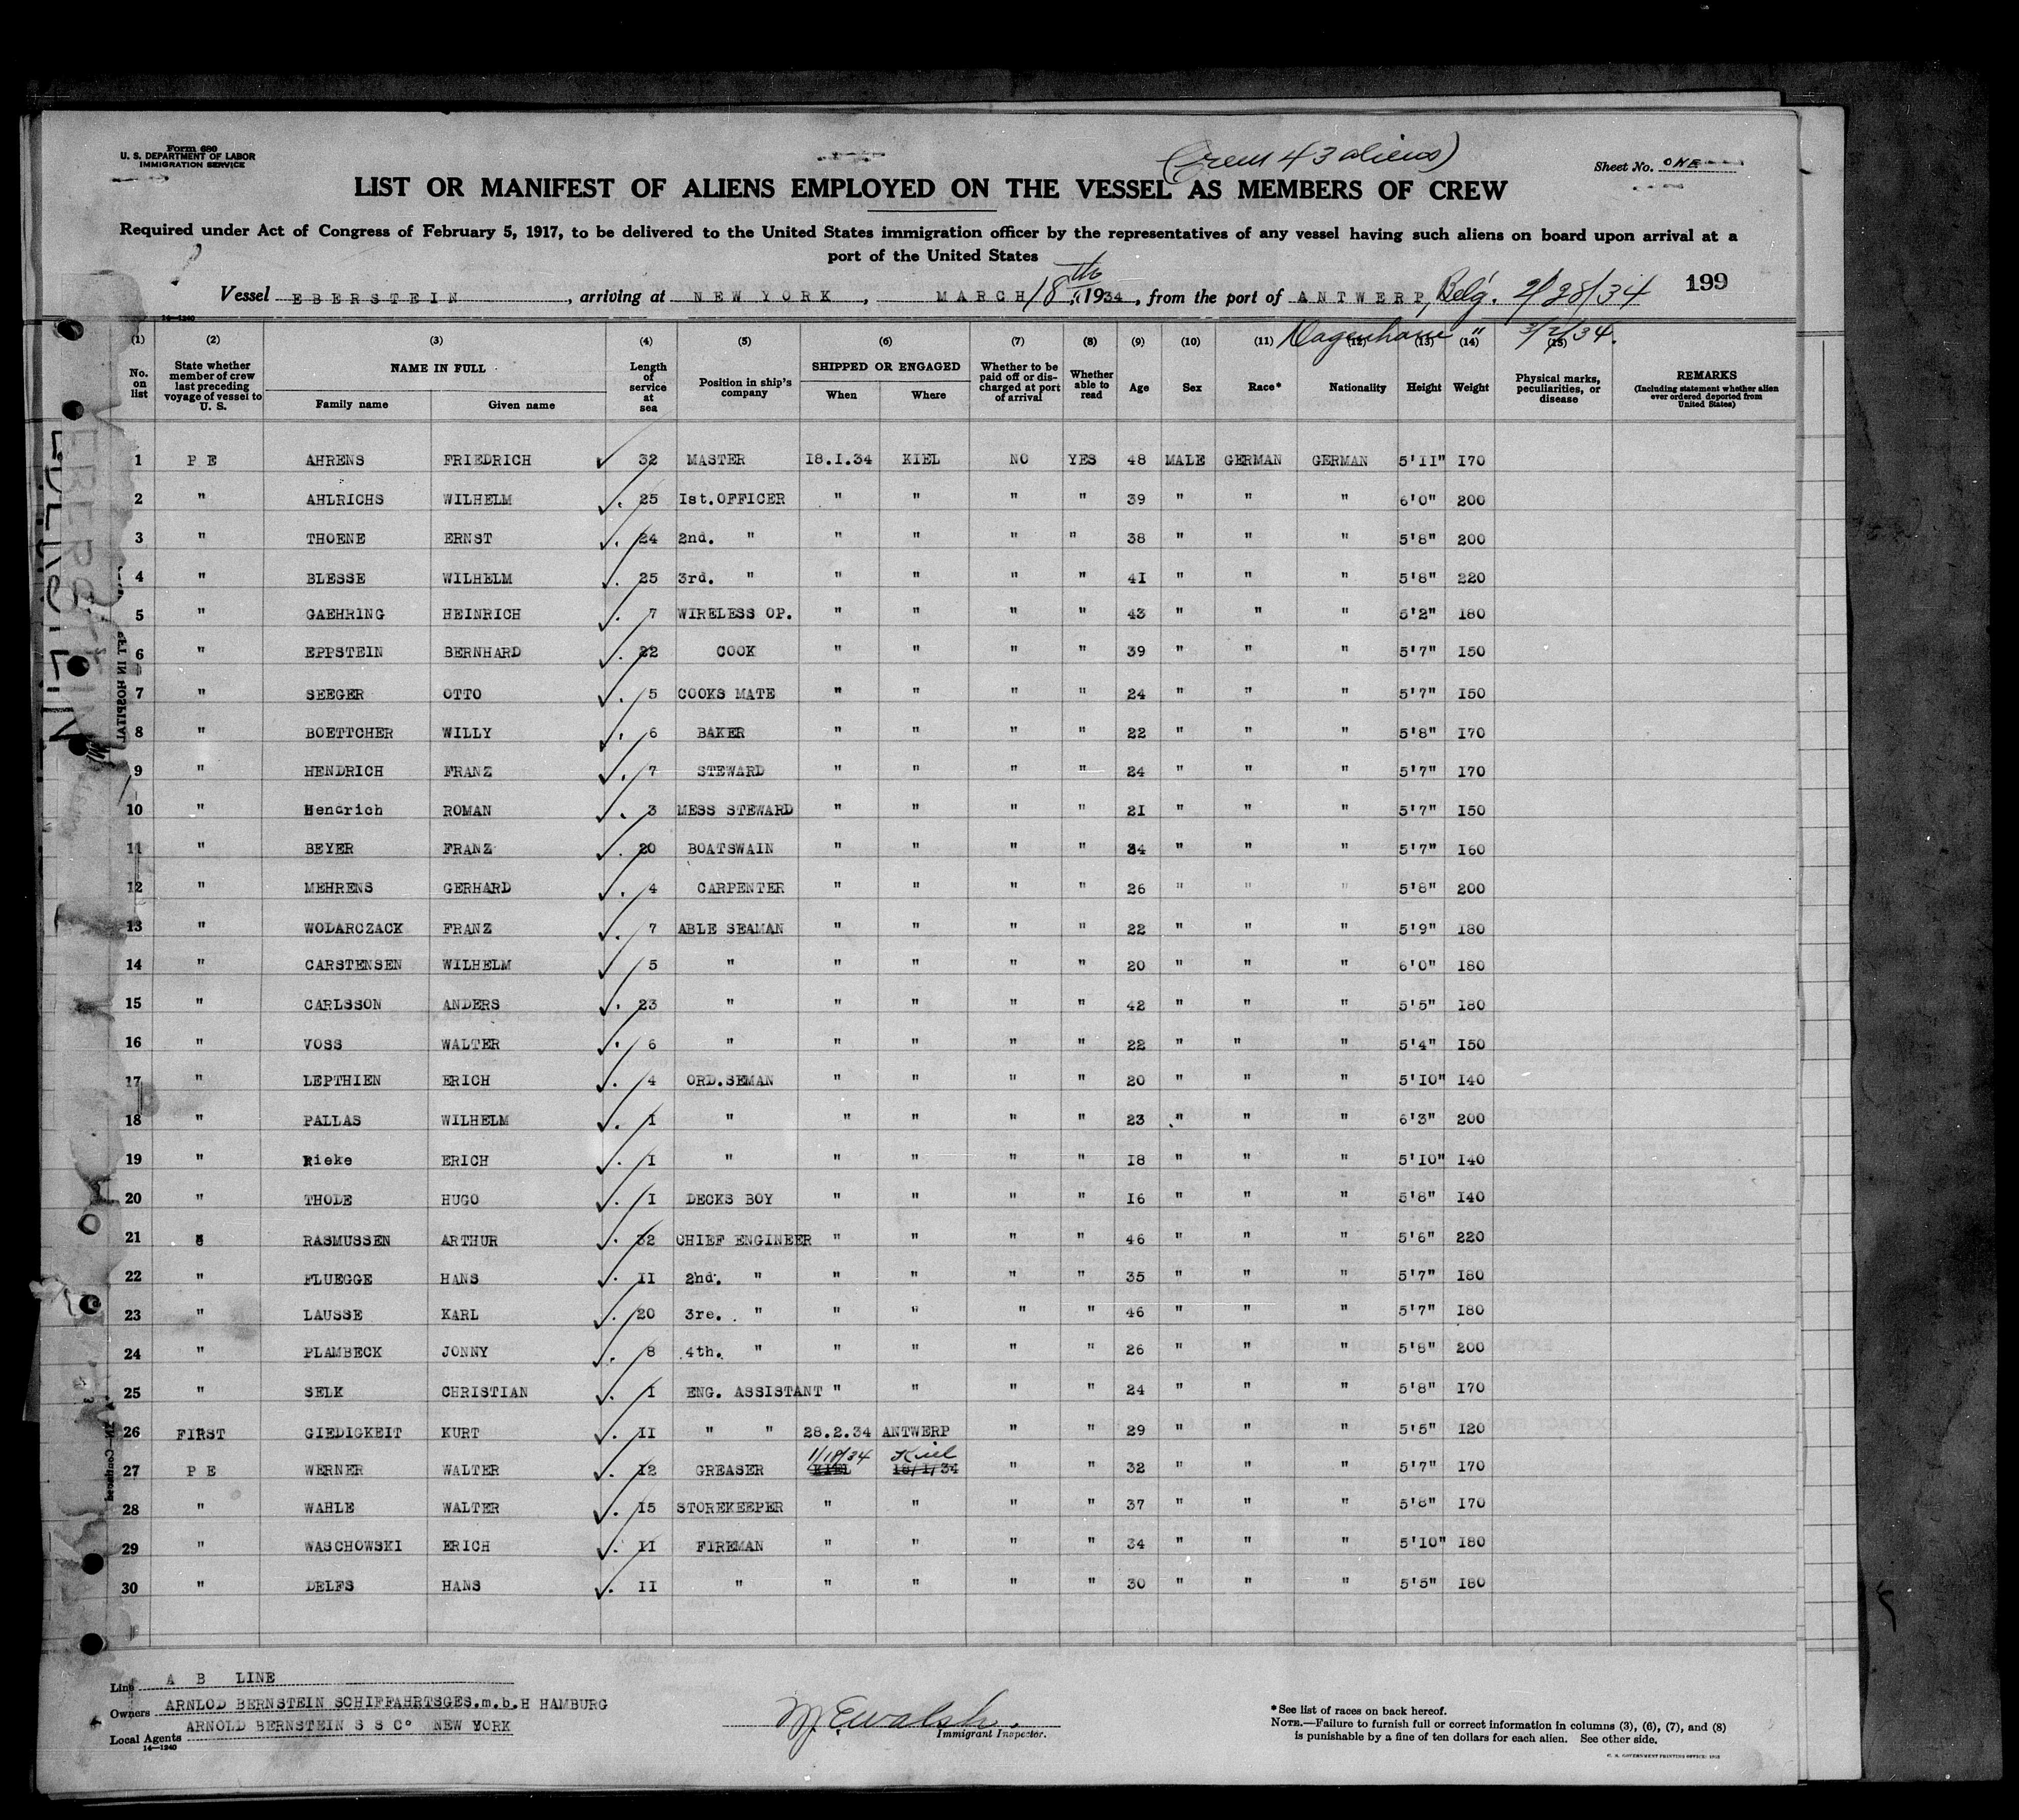 Form 680
U. S. DEPARTMENT OF LABOR
IMMIGRATION SERVICE
(Crew 43 aliens)
Sheet No. ONE
LIST OR MANIFEST OF ALIENS EMPLOYED ON THE VESSEL AS MEMBERS OF CREW
Required under Act of Congress of February 5, 1917, to be delivered to the United States immigration officer by the representatives of any vessel having such aliens on board upon arrival at a
port of the United States
Vessel EBERSTEIN, arriving at NEW YORK, MARCH 18th, 1934, from the port of ANTWERP, Belg. 2/28/34 199
14—1240
" 3/2/34.
(1) (2) (3) (4) (5) (6) (7) (8) (9) (10) (11) (12) (13) (14) (15)
No. on list State whether member of crew last preceding voyage of vessel to U. S. NAME IN FULL Family name Given name Length of service at sea Position in ship's company SHIPPED OR ENGAGED When Where Whether to be paid off or discharged at port of arrival Whether able to read Age Sex Race* Nationality Height Weight Physical marks, peculiarities, or disease REMARKS (Including statement whether alien ever ordered deported from United States)
1 P E AHRENS FRIEDRICH 32 MASTER 18.I.34 KIEL NO YES 48 MALE GERMAN GERMAN 5'11" I70
2 " AHLRICHS WILHELM 25 Ist.OFFICER " " " " 39 " " " 6'0" 200
3 " THOENE ERNST 24 2nd. " " " " " 38 " " " 5'8" 200
4 " BLESSE WILHELM 25 3rd. " " " " " 4I " " " 5'8" 220
5 " GAEHRING HEINRICH 7 WIRELESS OP. " " " " 43 " " " 5'2" I80
6 " EPPSTEIN BERNHARD 22 COOK " " " " 39 " " " 5'7" I50
7 " SEEGER OTTO 5 COOKS MATE " " " " 24 " " " 5'7" I50
8 " BOETTCHER WILLY 6 BAKER " " " " 22 " " " 5'8" I70
9 " HENDRICH FRANZ 7 STEWARD " " " " 24 " " " 5'7" I70
10 " Hendrich ROMAN 3 MESS STEWARD " " " " 2I " " " 5'7" I50
11 " BEYER FRANZ 20 BOATSWAIN " " " " 34 " " " 5'7" I60
12 " MEHRENS GERHARD 4 CARPENTER " " " " 26 " " " 5'8" 200
13 " WODARCZACK FRANZ 7 ABLE SEAMAN " " " " 22 " " " 5'9" I80
14 " CARSTENSEN WILHELM 5 " " " " " 20 " " " 6'0" I80
15 " CARLSSON ANDERS 23 " " " " " 42 " " " 5'5" I80
16 " VOSS WALTER 6 " " " " " 22 " " " 5'4" I50
17 " LEPTHIEN ERICH 4 ORD.SEMAN " " " " 20 " " " 5'I0" I40
18 " PALLAS WILHELM I " " " " " 23 " " " 6'3" 200
19 " Rieke ERICH I " " " " " I8 " " " 5'I0" I40
20 " THODE HUGO I DECKS BOY " " " " I6 " " " 5'8" I40
21 RASMUSSEN ARTHUR 32 CHIEF ENGINEER " " " " 46 " " " 5'6" 220
22 " FLUEGGE HANS II 2nd. " " " " " 35 " " " 5'7" I80
23 " LAUSSE KARL 20 3re. " " " " " 46 " " " 5'7" I80
24 " PLAMBECK JONNY 8 4th. " " " " " 26 " " " 5'8" 200
25 " SELK CHRISTIAN I ENG. ASSISTANT " " " " 24 " " " 5'8" I70
26 FIRST GIEDIGKEIT KURT II " " 28.2.34 ANTWERP " " 29 " " " 5'5" I20
1/18/34 Kiel
27 P E WERNER WALTER I2 GREASER KIEL 18/I/34 " " 32 " " " 5'7" I70
28 " WAHLE WALTER I5 STOREKEEPER " " " " 37 " " " 5'8" I70
29 " WASCHOWSKI ERICH II FIREMAN " " " " 34 " " " 5'I0" I80
30 " DELFS HANS II " " " " " 30 " " " 5'5" I80
Line A B LINE
Owners ARNLOD BERNSTEIN SCHIFFAHRTSGES.m.b.H HAMBURG
Local Agents ARNOLD BERNSTEIN S S Co NEW YORK
14—1240
M Ewalsh.
Immigrant Inspector.
*See list of races on back hereof.
NOTE.—Failure to furnish full or correct information in columns (3), (6), (7), and (8)
is punishable by a fine of ten dollars for each alien. See other side.
EBERSTEIN